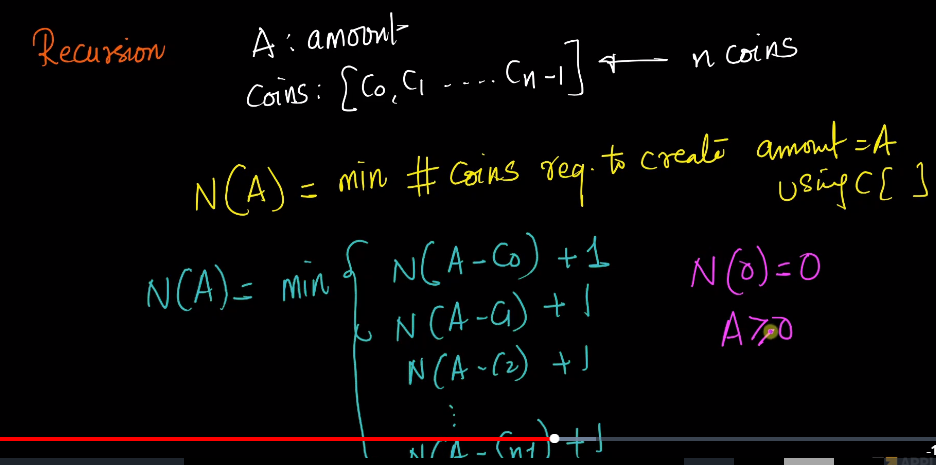 Recursion
A: amount
coins: [C0, C1 ..... Cn-1] ← n coins
N(A) = min # coins req. to create amount = A
using C[ ]
N(A) = min { N(A-C0) + 1
N(A-C1) + 1
N(A-C2) + 1
⋮
N(A-Cn-1) + 1
N(0) = 0
A ≥ 0
-1